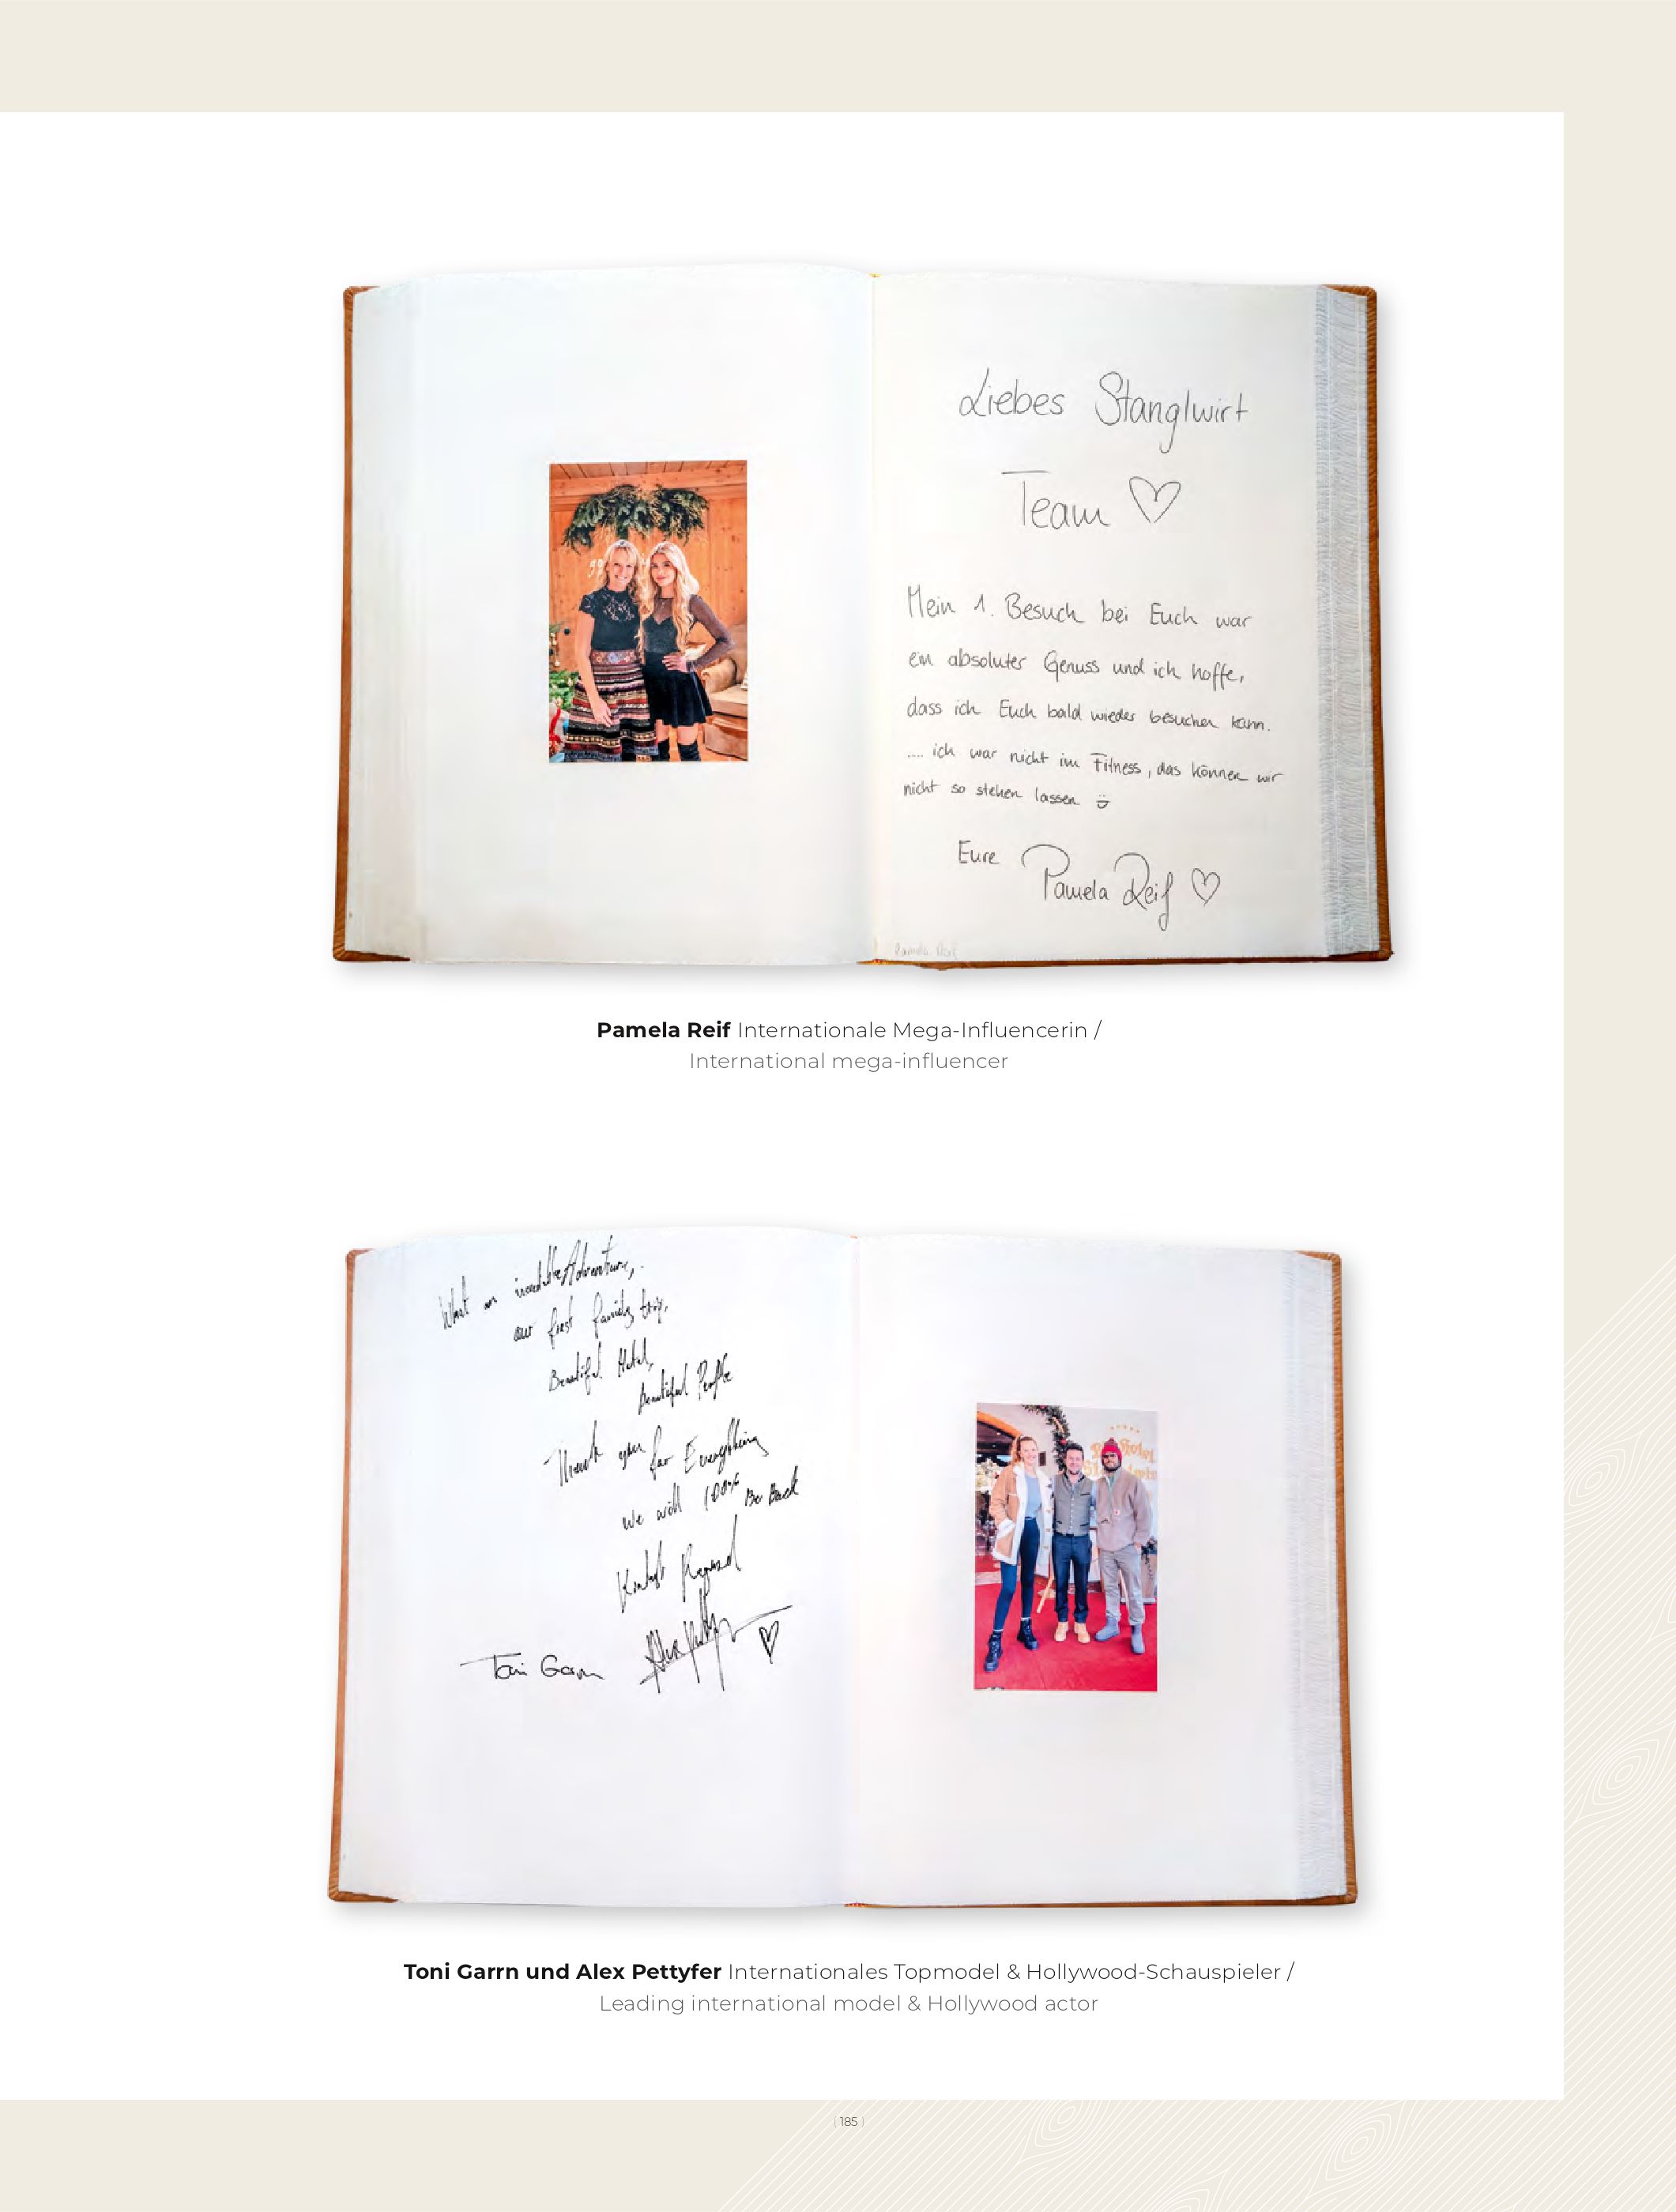 Liebes Stanglwirt
Team ♡
Mein 1. Besuch bei Euch war
ein absoluter Genuss und ich hoffe,
dass ich Euch bald wieder besuchen kann.
.... ich war nicht im Fitness, das können wir
nicht so stehen lassen
Eure Pamela Reif ♡
Pamela Reif
Pamela Reif Internationale Mega-Influencerin /
International mega-influencer
What an incredible Adventure,
our first family trip.
Beautiful Hotel,
Beautiful People
Thank you for Everything
we will 100% Be Back
Kindest Regard
Toni Garrn
♡
Toni Garrn und Alex Pettyfer Internationales Topmodel & Hollywood-Schauspieler /
Leading international model & Hollywood actor
( 185 )